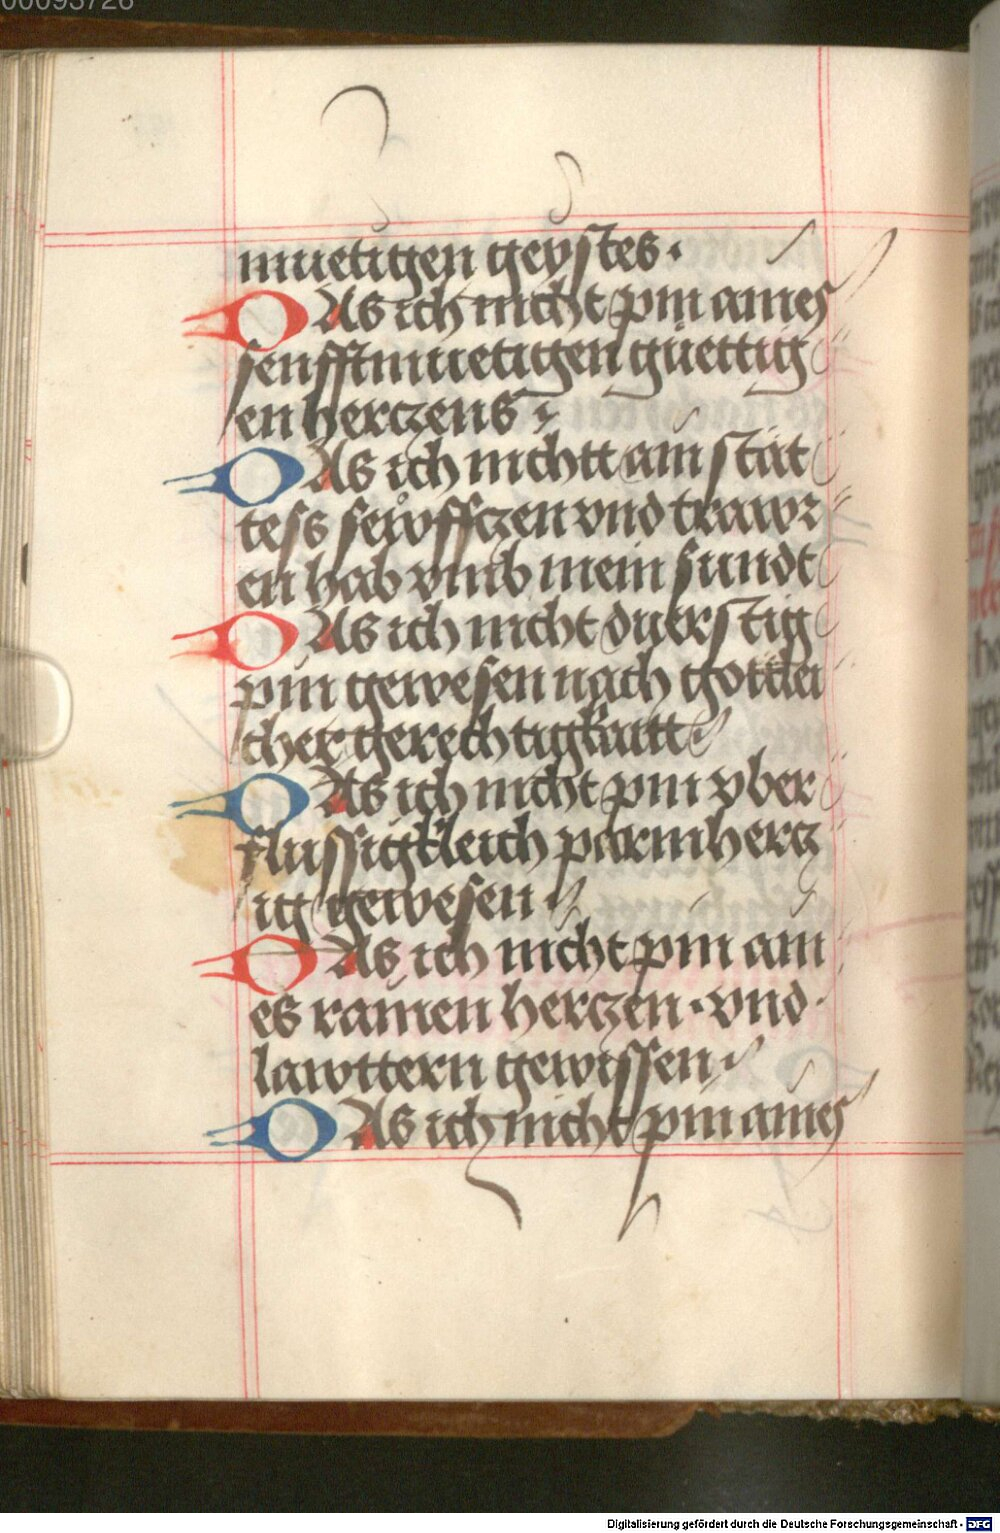 00093728
muetigen geystes ·
DAs ich nicht pin aines
senfftmuetigen güettig
en herczens :
DAs ich nichtt ain stät
tess sewffczen vnd trawr
en hab vmb mein sundt
DAs ich nicht duerstig
pin gewesen nach gottlei
cher gerechtigkaitt
DAs ich nicht pin vber
flussigkleich parmhercz
ig gewesen
DAs ich nicht pin ain
es rainen herczen · vnd
lawttern gewissen
DAs ich nicht pin aines
Digitalisierung gefördert durch die Deutsche Forschungsgemeinschaft - DFG